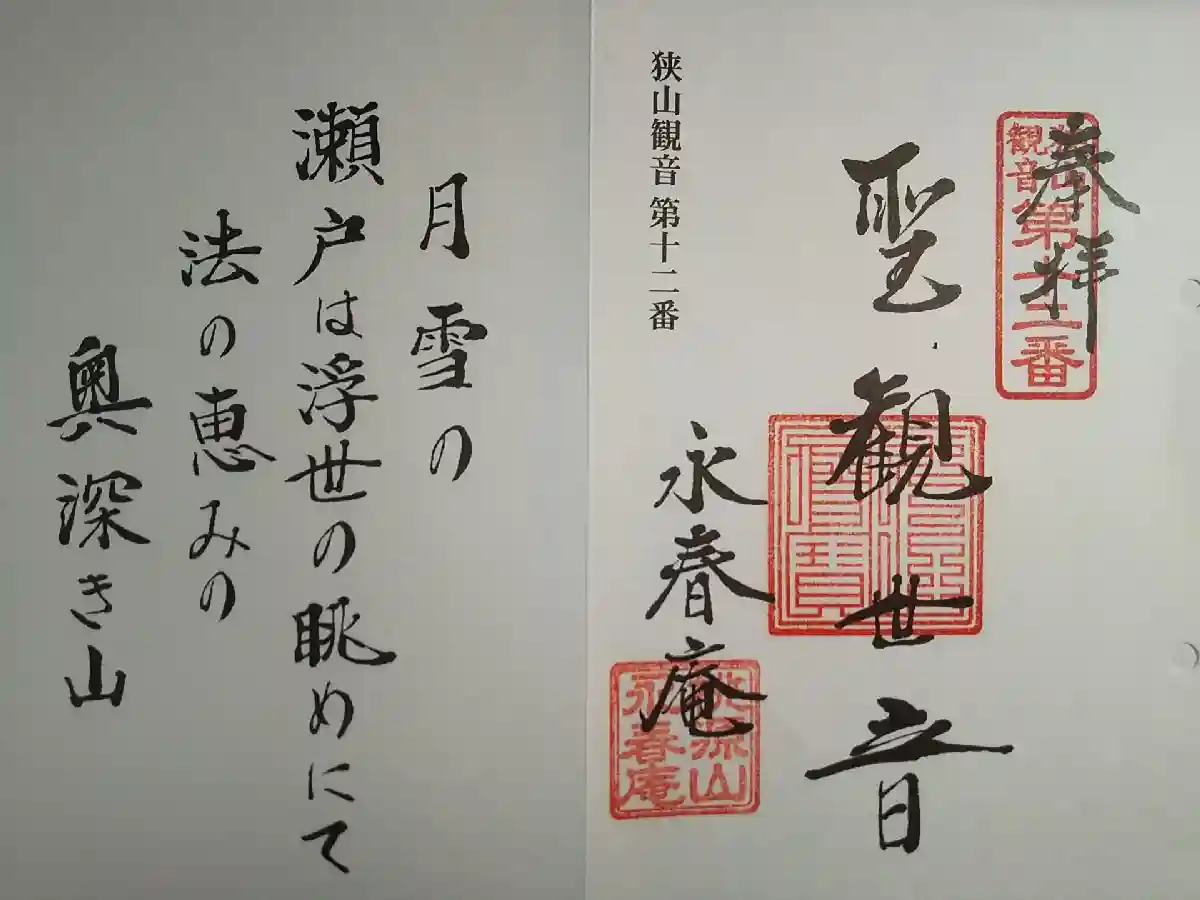 奉拝
狭山観音第十二番
聖観世音
狭山観音 第十二番
永春庵
桃源山永春庵
月雪の
瀬戸は浮世の眺めにて
法の恵みの
奥深き山